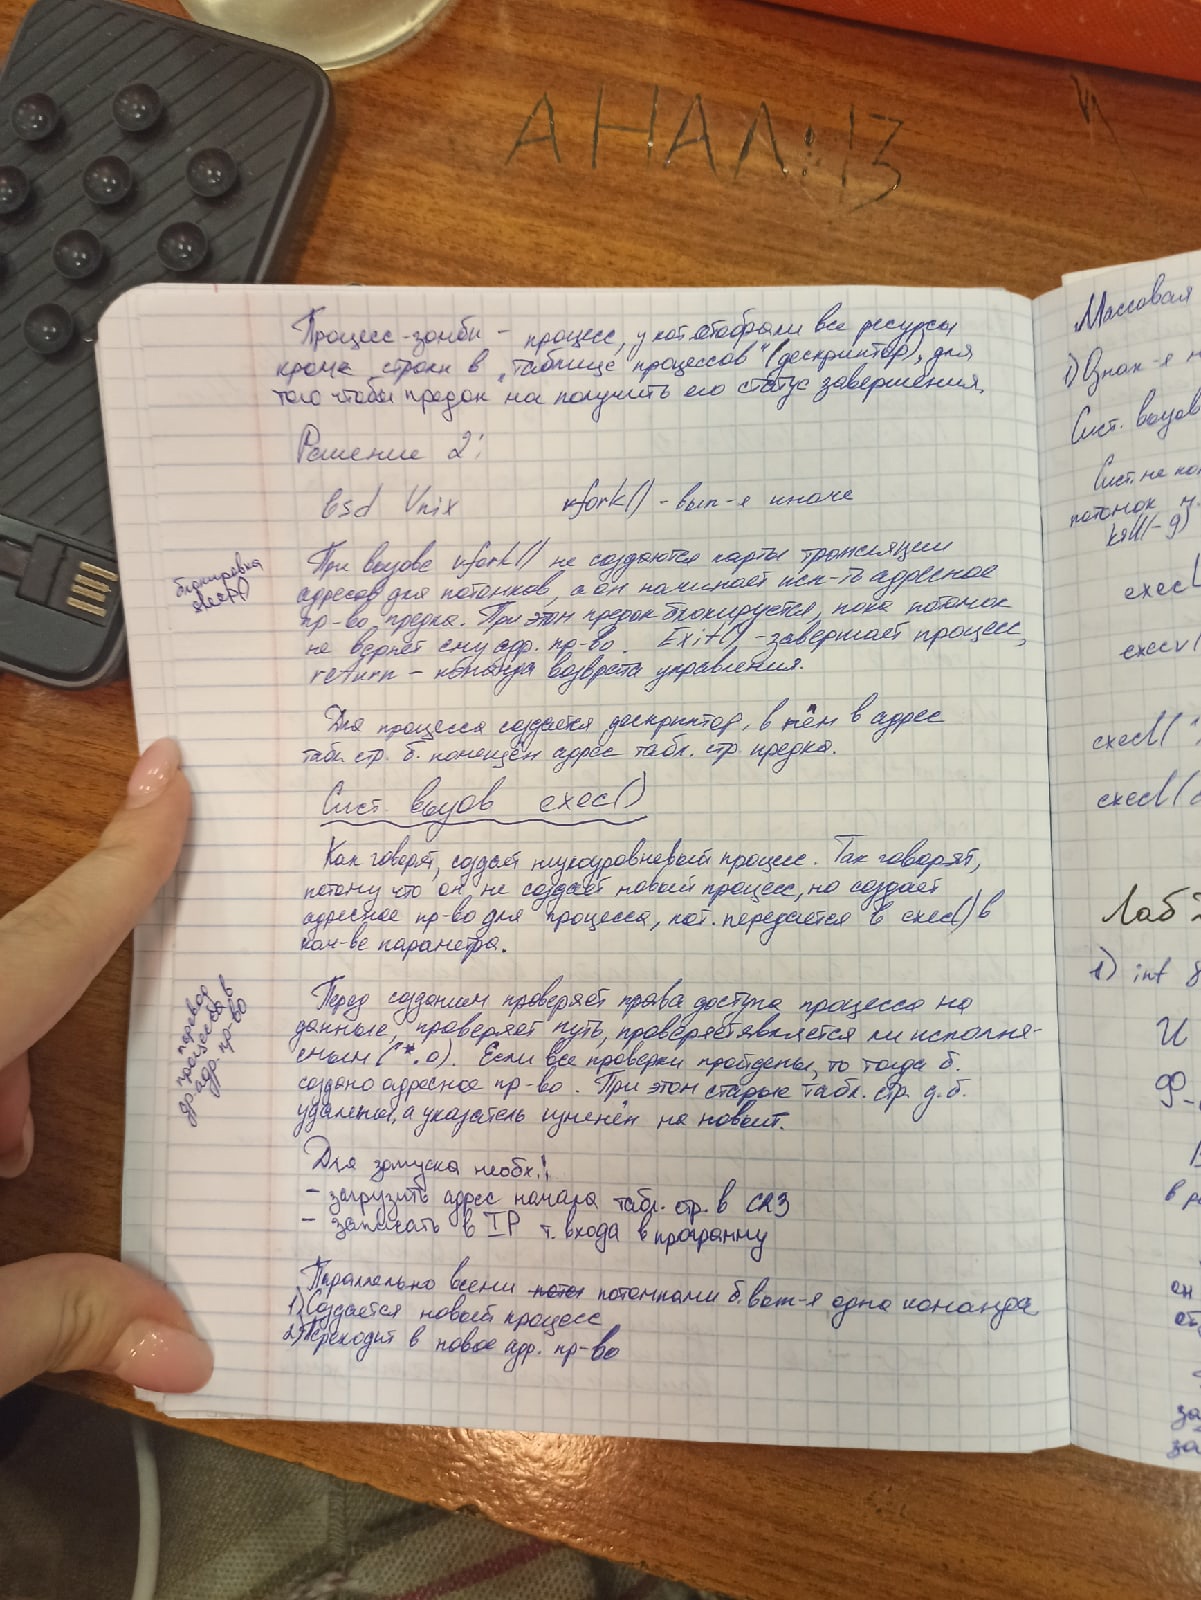 АНАЛ:13
Процесс-зомби - процесс, у кот. отобрали все ресурсы
кроме строки в "таблице процессов" (дескриптор), для
того чтобы предок мог получить его статус завершения.
Решение 2:
bsd Unix vfork() - вып-я иначе
При вызове vfork() не создаются карты трансляции
адресов для потомков, а он начинает исп-ть адресное
пр-во предка. При этом предок блокируется, пока потомок
не вернёт ему адр. пр-во. Exit() - завершает процесс,
return - команда возврата управления.
блокировка
exec()
Для процесса создаётся дескриптор, в нём в адрес
табл. стр. б. помещён адрес табл. стр. предка.
Сист. вызов exec()
Как говорят, создаёт низкоуровневый процесс. Так говорят,
потому что он не создаёт новый процесс, но создаёт
адресное пр-во для процесса, кот. передаётся в exec() в
кач-ве параметра.
перевод
процесса в
др. адр. пр-во
Перед созданием проверяет права доступа процесса на
данные, проверяет путь, проверяет является ли исполня-
емым (*.o). Если все проверки пройдены, то тогда б.
создано адресное пр-во. При этом старые табл. стр. д. б.
удалены, а указатель изменён на новый.
Для запуска необх.:
- загрузить адрес начала табл. стр. в CR3
- записать в IP т. входа в программу
Параллельно всеми потомками б. вып-я одна команда
1) Создаётся новый процесс
2) Переходит в новое адр. пр-во
Массовая
1) Озн-я
Сист. вызов
Сист. не
потомок
kill(-9)
execl
execv(
execl("
execl(
Лаб
1) int
И
Ф-
в